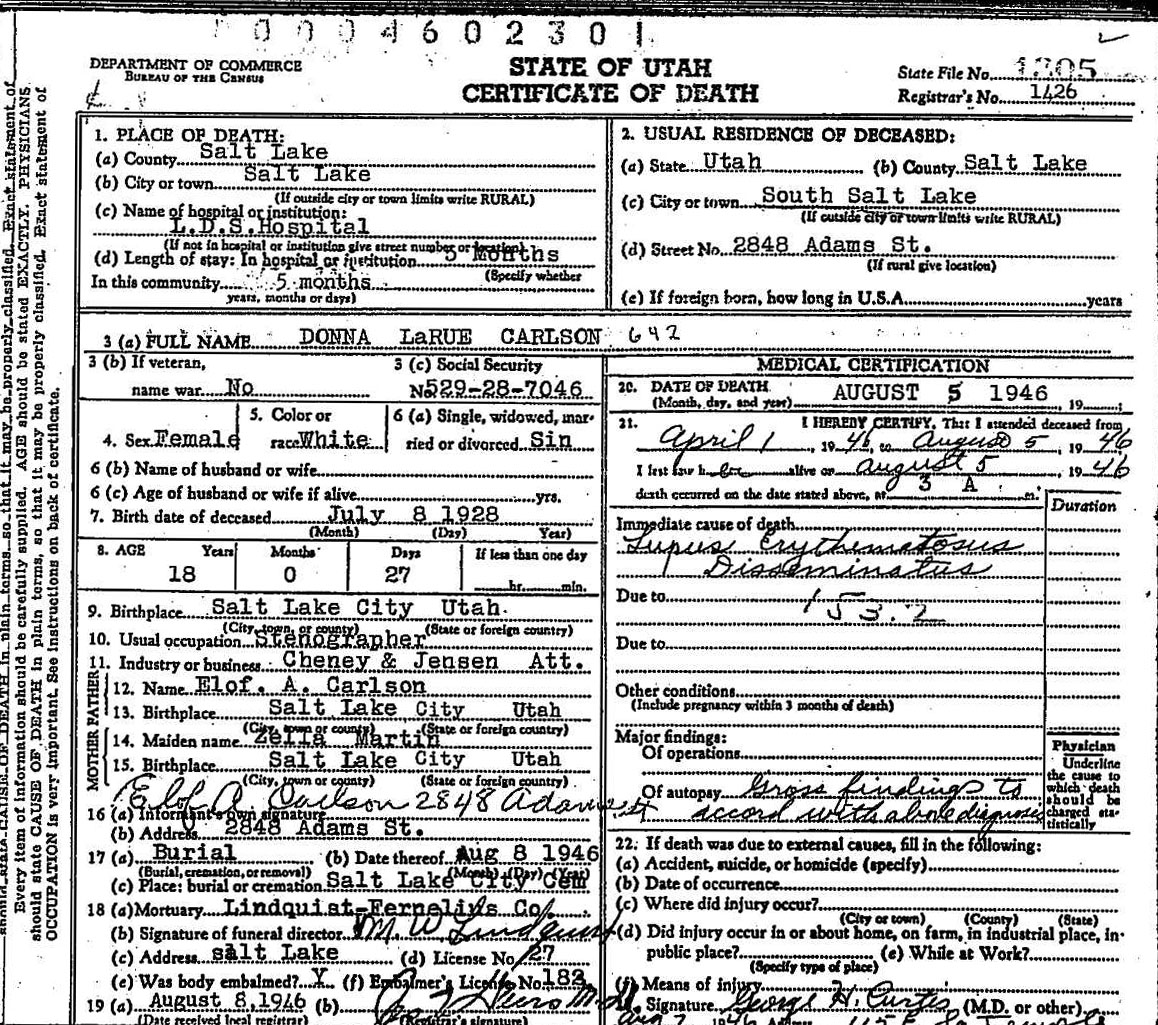 0004602301
DEPARTMENT OF COMMERCE
BUREAU OF THE CENSUS
STATE OF UTAH
CERTIFICATE OF DEATH
State File No. 1305
Registrar's No. 1426
1. PLACE OF DEATH:
(a) County Salt Lake
(b) City or town Salt Lake
(If outside city or town limits write RURAL)
(c) Name of hospital or institution:
L.D.S.Hospital
(If not in hospital or institution give street number or location)
(d) Length of stay: In hospital or institution 5 Months
(Specify whether
In this community 5 months
years, months or days)
2. USUAL RESIDENCE OF DECEASED:
(a) State Utah (b) County Salt Lake
(c) City or town South Salt Lake
(If outside city or town limits write RURAL)
(d) Street No. 2848 Adams St.
(If rural give location)
(e) If foreign born, how long in U.S.A. years
3 (a) FULL NAME DONNA LaRUE CARLSON 642
3 (b) If veteran,
name war No
3 (c) Social Security
No. 529-28-7046
4. Sex Female
5. Color or
race White
6 (a) Single, widowed, mar-
ried or divorced Sin
6 (b) Name of husband or wife
6 (c) Age of husband or wife if alive yrs.
7. Birth date of deceased July 8 1928
(Month) (Day) Year)
8. AGE Years Months Days If less than one day
18 0 27 hr. min.
9. Birthplace Salt Lake City Utah
(City, town, or county) (State or foreign country)
10. Usual occupation Stenographer
11. Industry or business Cheney & Jensen Att.
FATHER
12. Name Elof. A. Carlson
13. Birthplace Salt Lake City Utah
(City, town or county) (State or foreign country)
MOTHER
14. Maiden name Zella Martin
15. Birthplace Salt Lake City Utah
(City, town or county) (State or foreign country)
Elof A. Carlson 2848 Adams St
16 (a) Informant's own signature
(b) Address 2848 Adams St.
17 (a) Burial (b) Date thereof Aug 8 1946
(Burial, cremation, or removal) (Month) (Day) (Year)
(c) Place: burial or cremation Salt Lake City Cem
18 (a) Mortuary Lindquist-Fernelius Co.
(b) Signature of funeral director M. W. Lindquist
(c) Address salt Lake (d) License No. 27
(e) Was body embalmed? Y (f) Embalmer's License No. 183
19 (a) August 8,1946 (b)
(Date received local registrar) (Registrar's signature)
MEDICAL CERTIFICATION
20. DATE OF DEATH AUGUST 5 1946
(Month, day, and year) , 19 ;
21. I HEREBY CERTIFY, That I attended deceased from
April 1 , 19 46, to August 5 , 19 46
I last saw her alive on August 5 , 19 46
death occurred on the date stated above, at 3 A m.
Duration
Immediate cause of death
Lupus Erythematosus
Disseminatus
Due to 153.2
Due to
Other conditions
(Include pregnancy within 3 months of death)
Major findings:
Of operations
Of autopsy Gross findings to
accord with above diagnosis
Physician
Underline
the cause to
which death
should be
charged sta-
tistically
22. If death was due to external causes, fill in the following:
(a) Accident, suicide, or homicide (specify)
(b) Date of occurrence
(c) Where did injury occur?
(City or town) (County) (State)
(d) Did injury occur in or about home, on farm, in industrial place, in-
public place? (e) While at Work?
(Specify type of place)
(f) Means of injury
Signature George H. Curtis (M.D. or other)
Every item of information should be carefully supplied. AGE should be stated EXACTLY. PHYSICIANS
should state CAUSE OF DEATH in plain terms, so that it may be properly classified. Exact statement of
OCCUPATION is very important. See instructions on back of certificate.